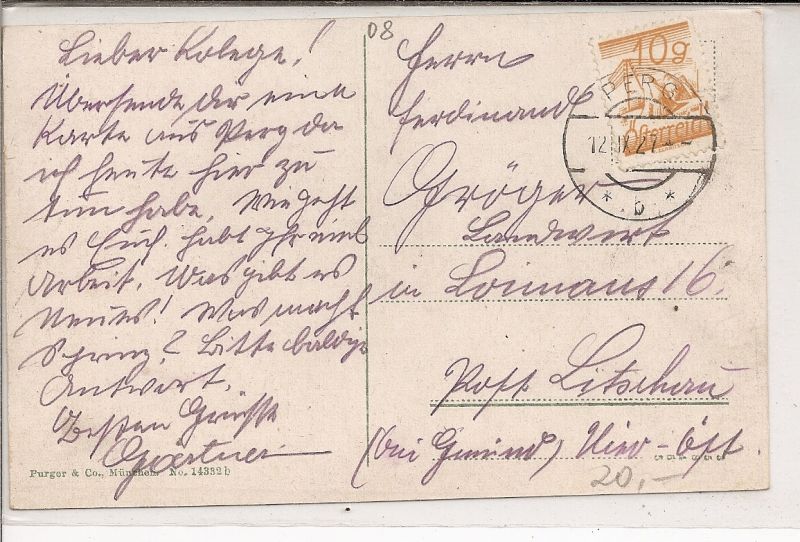 Lieber Kolege!
Übersende dir eine
Karte aus Perg da
ich heute hier zu
tun habe. Wie geht
es Euch, habt Ihr viel
Arbeit. Was gibt es
Neues! Was macht
Bitte baldige
Antwort.
Besten Grüsse
Gaertner
Purger & Co., München. No. 14332 b
08
Herrn
Ferdinand
Gröger
Landwirt
in Loimans 16.
Post Litschau
(bei Gmünd) Nied-Öst.
20,—
10g
Österreich
PERG
12 IX 27
* b *